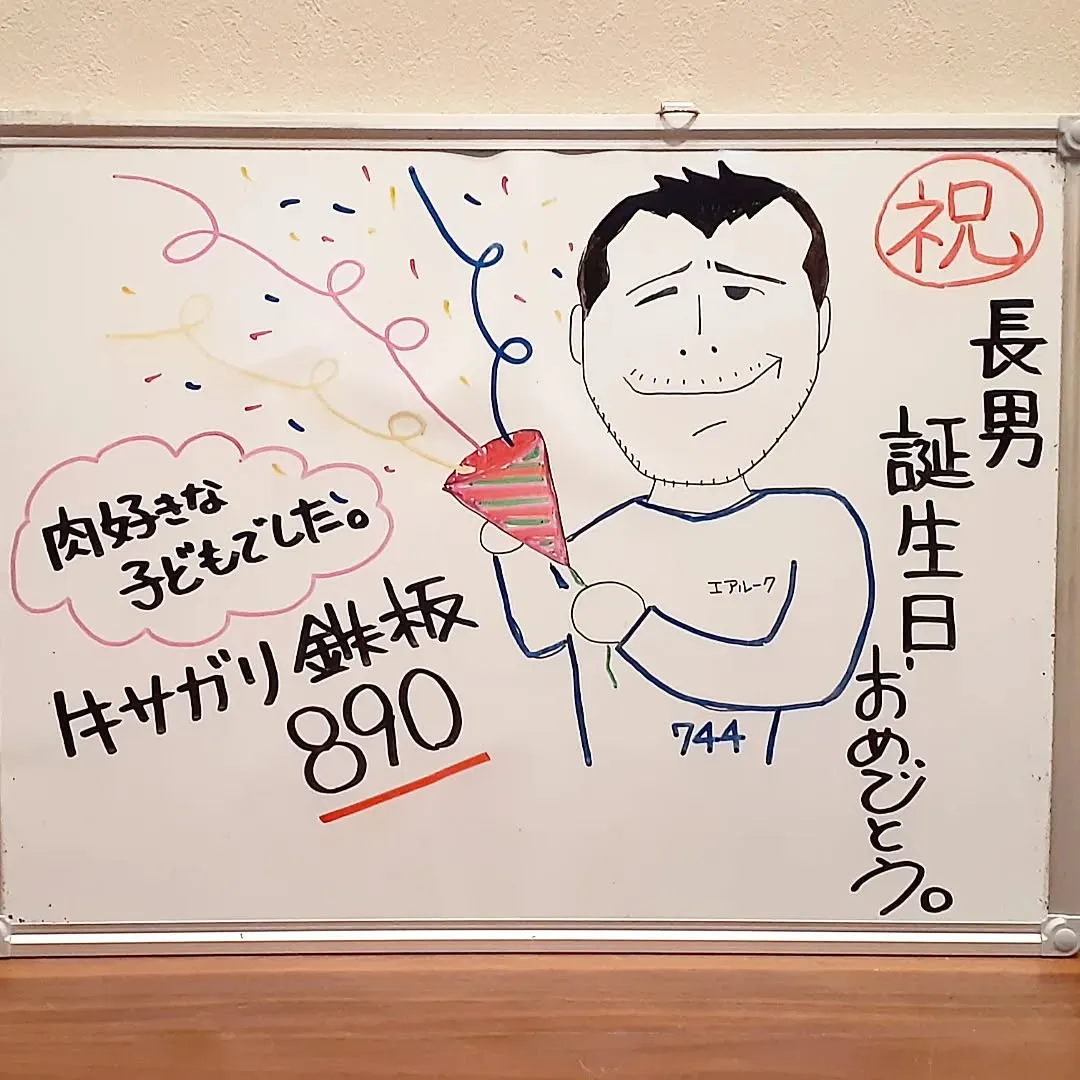 祝
長男
誕生日
おめでとう。
肉好きな
子どもでした。
牛サガリ鉄板
890
エアルーク
744